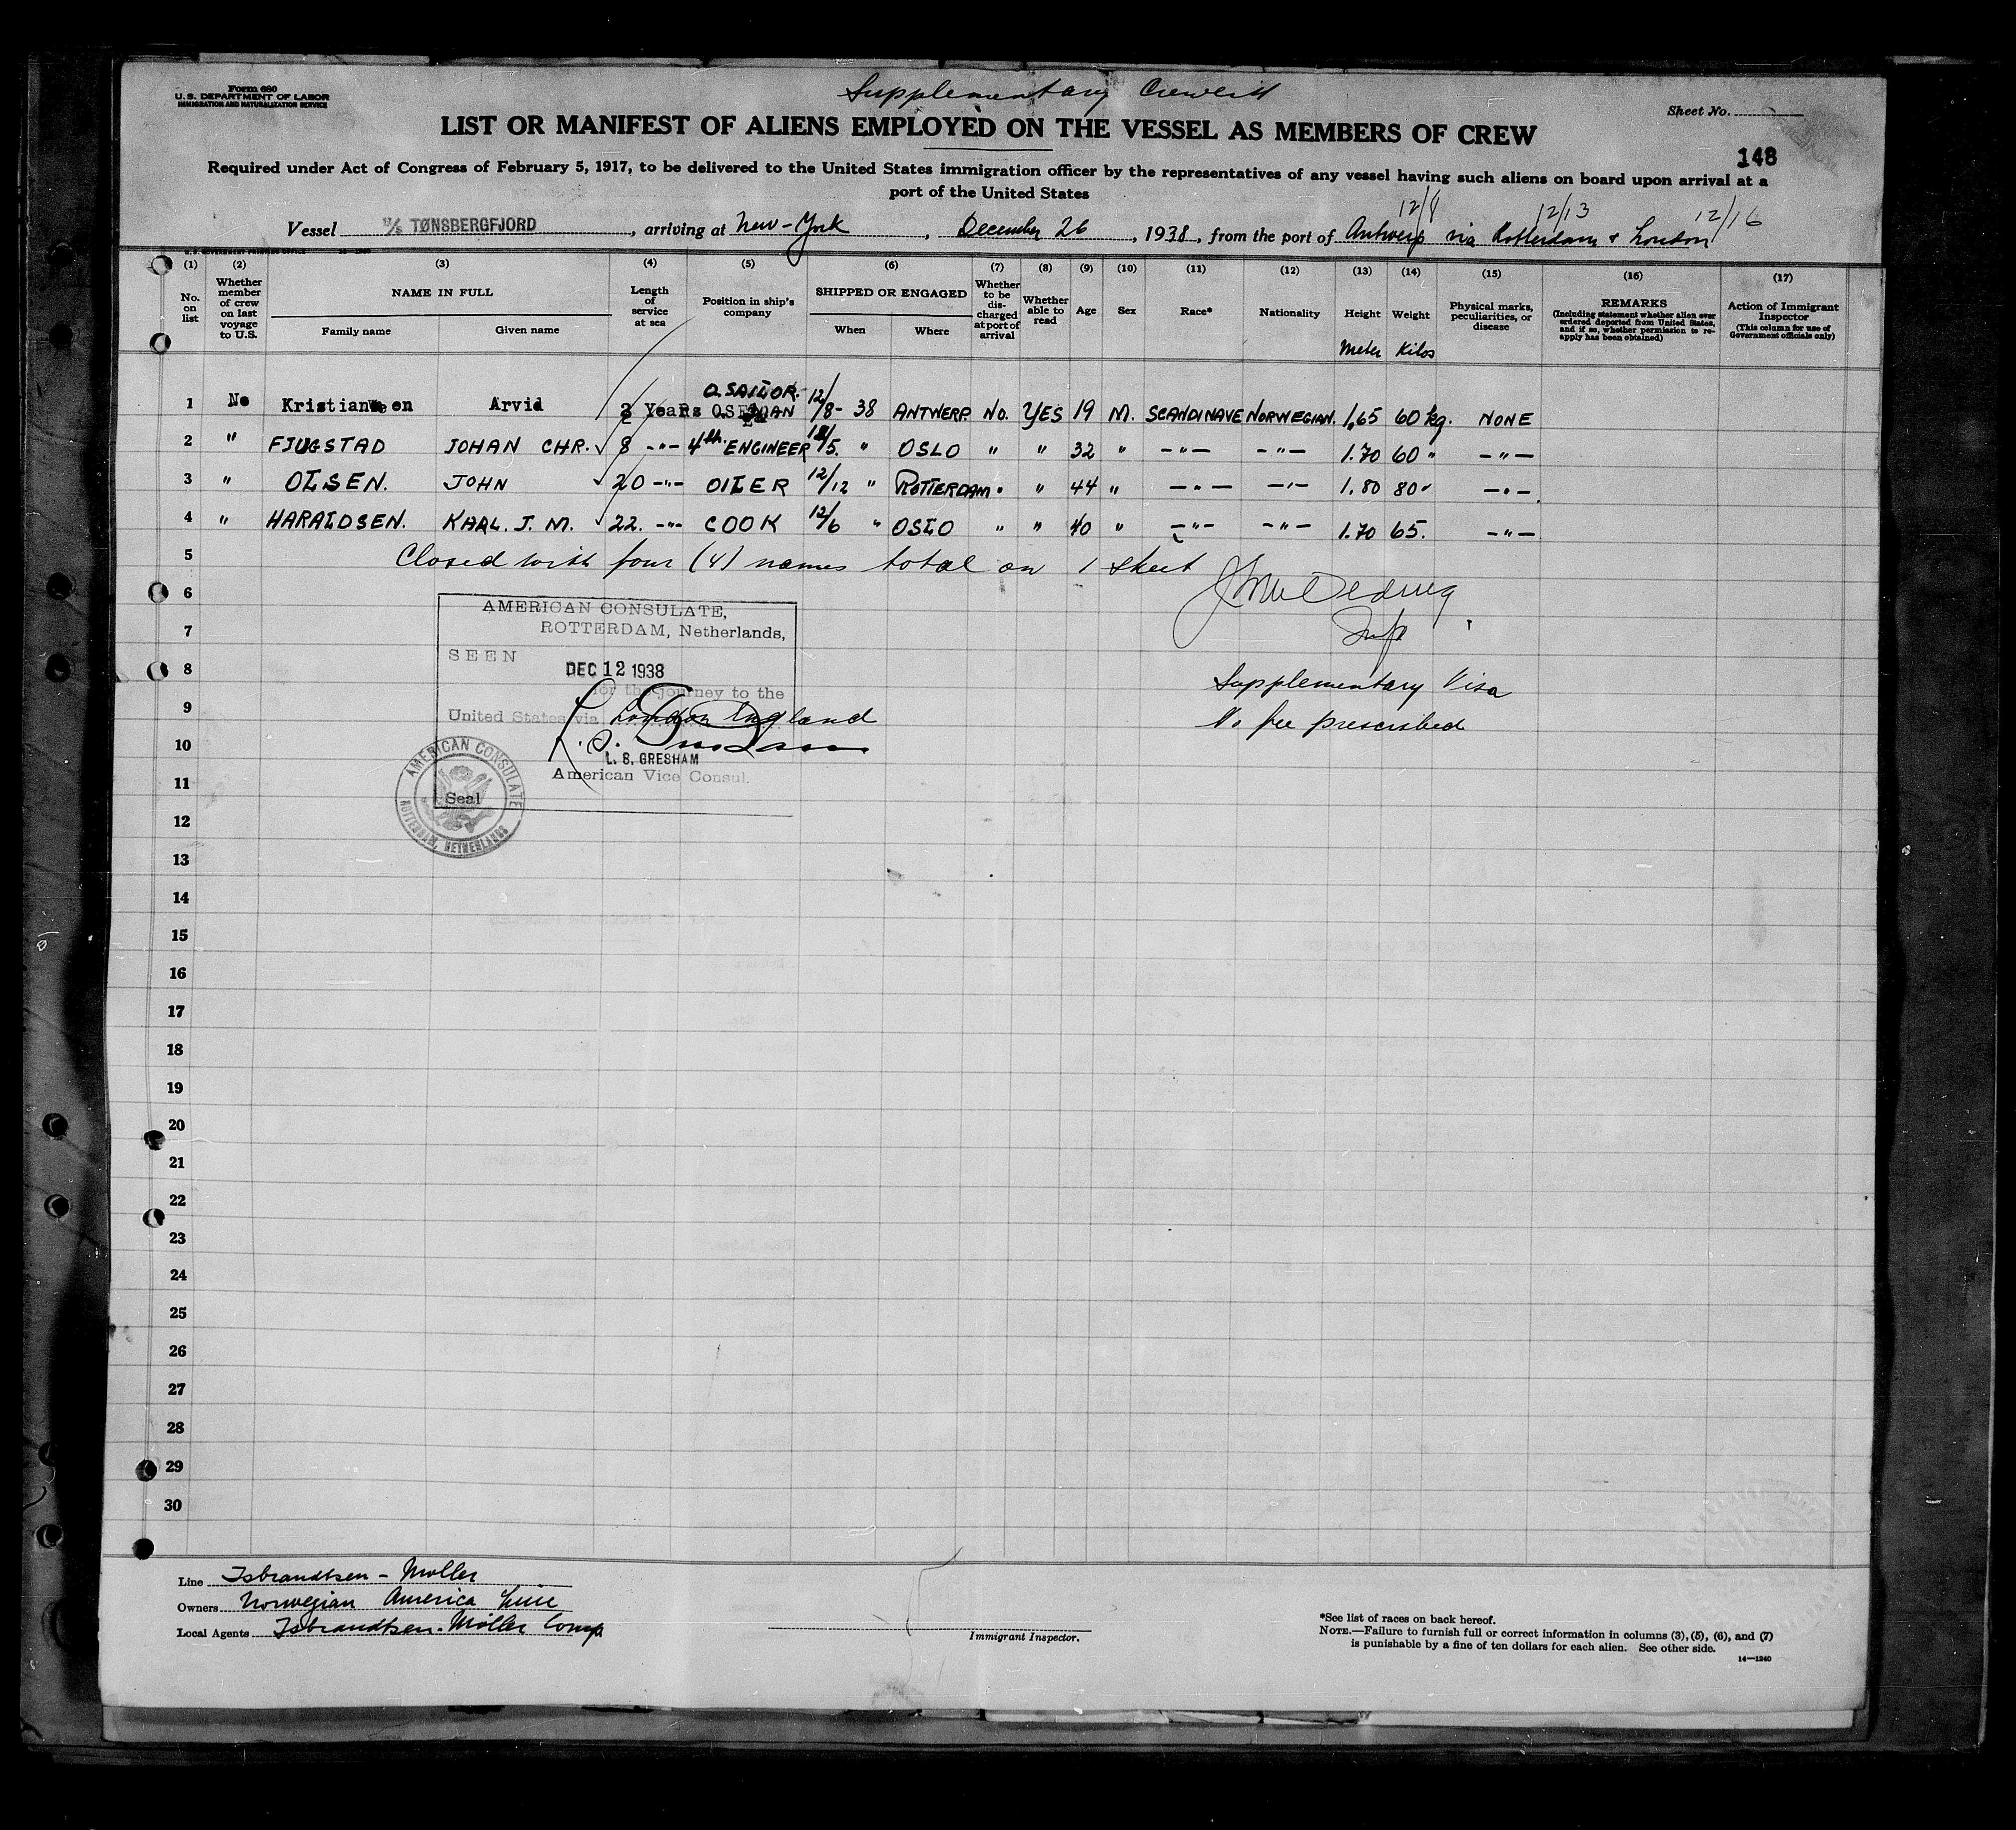 Form 680
U. S. DEPARTMENT OF LABOR
IMMIGRATION AND NATURALIZATION SERVICE
Supplementary Crewlist
Sheet No.
LIST OR MANIFEST OF ALIENS EMPLOYED ON THE VESSEL AS MEMBERS OF CREW
148
Required under Act of Congress of February 5, 1917, to be delivered to the United States immigration officer by the representatives of any vessel having such aliens on board upon arrival at a
port of the United States
12/8 12/13 12/16
Vessel M/S TØNSBERGFJORD, arriving at New-York, December 26, 1938, from the port of Antwerp via Rotterdam + London
U. S. GOVERNMENT PRINTING OFFICE
(1) (2) (3) (4) (5) (6) (7) (8) (9) (10) (11) (12) (13) (14) (15) (16) (17)
No. on list
Whether member of crew on last voyage to U.S.
NAME IN FULL
Family name
Given name
Length of service at sea
Position in ship's company
SHIPPED OR ENGAGED
When
Where
Whether to be discharged at port of arrival
Whether able to read
Age
Sex
Race*
Nationality
Height
Weight
Physical marks, peculiarities, or disease
REMARKS
(Including statement whether alien ever ordered deported from United States, and if so, whether permission to reapply has been obtained)
Action of Immigrant Inspector
(This column for use of Government officials only)
Meter Kilos
O. SAILOR.
1 No Kristian en Arvid Years 12/8- 38 ANTWERP. NO. YES 19 M. SCANDINAVE NORWEGIAN. 1,65 60 kg. NONE
2 " FJUGSTAD JOHAN CHR. 8 -"- 4th ENGINEER /5. " OSLO " " 32 " -"- -"- 1.70 60 " -"-
3 " OLSEN. JOHN 20 -"- OILER 12/12 " ROTTERDAM " " 44 " -"- -"- 1.80 80 " -"-
4 " HARALDSEN. KARL. J. M. 22. -"- COOK 12/6 " OSLO " " 40 " -"- -"- 1.70 65. -"-
5 Closed with four (4) names total on 1 sheet
6
7
8
9
10
11
12
13
14
15
16
17
18
19
20
21
22
23
24
25
26
27
28
29
30
AMERICAN CONSULATE,
ROTTERDAM, Netherlands,
SEEN
DEC 12 1938
for the journey to the
United States via London England
L. S. GRESHAM
American Vice Consul.
Seal
AMERICAN CONSULATE
ROTTERDAM, NETHERLANDS
Supplementary Visa
No fee prescribed
Line Isbrandtsen - Moller
Owners Norwegian America Line
Local Agents Isbrandtsen. Möller Comp
Immigrant Inspector.
*See list of races on back hereof.
NOTE.—Failure to furnish full or correct information in columns (3), (5), (6), and (7)
is punishable by a fine of ten dollars for each alien. See other side.
14—1240